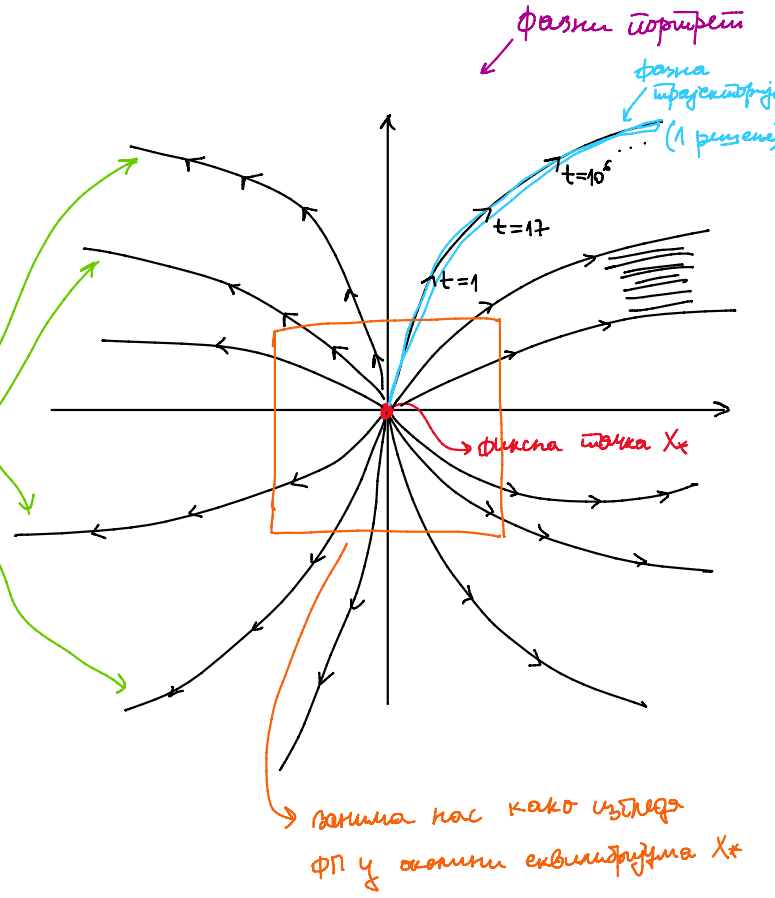 фазни портрет
фазна
трајекториј
(1 решење
...
t=10⁶
t=17
t=1
фиксна тачка X*
занима нас како изгледа
ФП у околини еквилибријума X*